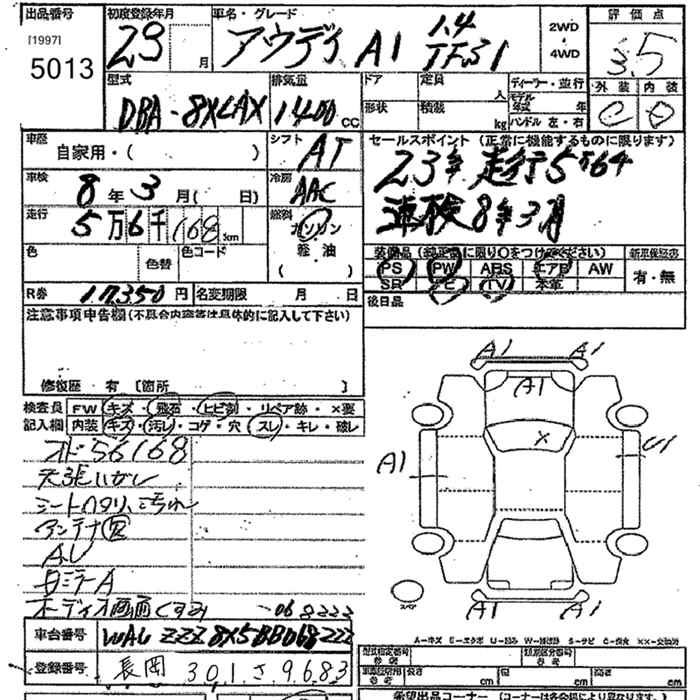 出品番号 初度登録年月 車名・グレード 評価点
[1997] 5013
23 月
アウディ A1 1.4 TFSI
2WD ・ 4WD
3.5
外装 内装
C D
型式 排気量 ドア 定員 人 ディーラー・並行
DBA-8XCAX 1400 CC
形状 積載 kg モデル年式 年
ハンドル 左・右
車歴 自家用・( )
シフト AT
セールスポイント (正常に機能するものに限ります)
23年 走行5万6千
車検8年3月
車検 8年3月( 日)
冷房 AAC
走行 5万6千168km
燃料 ガソリン 軽油 ( )
色 色替 色コード
装備品 (純正品に限り○をつけてください) 新車保証書
PS PW ABS エアB AW 有・無
SR ナビ TV 本革
R券 17,350円 名変期限 月 日
後日品
注意事項申告欄(不具合内容等は具体的に記入して下さい)
修復歴・有 〔箇所 〕
検査員 FW キズ・飛石・ヒビ割・リペア跡・×要
記入欄 内装 キズ・汚レ・コゲ・穴・スレ・キレ・破レ
オド56168
天張はがし
シートヘタリ、汚れ
アンテナ欠
AU
Bミラー A
オーディオ画面くすみ
A1 A1
A1
X
A1 U1
A1 A1
スペア
068222
車台番号 WAUZZZ8X5BB068222
A-キズ E-エクボ U-凹み W-補修跡 S-サビ C-腐食 XX-交換済
登録番号 長岡 301 さ 9683
型式指定番号 参考 類別区分番号 参考
車検証原用 参考 長さ cm 幅 cm 高さ cm
希望出品コーナー (コーナーは各会場により異なります)